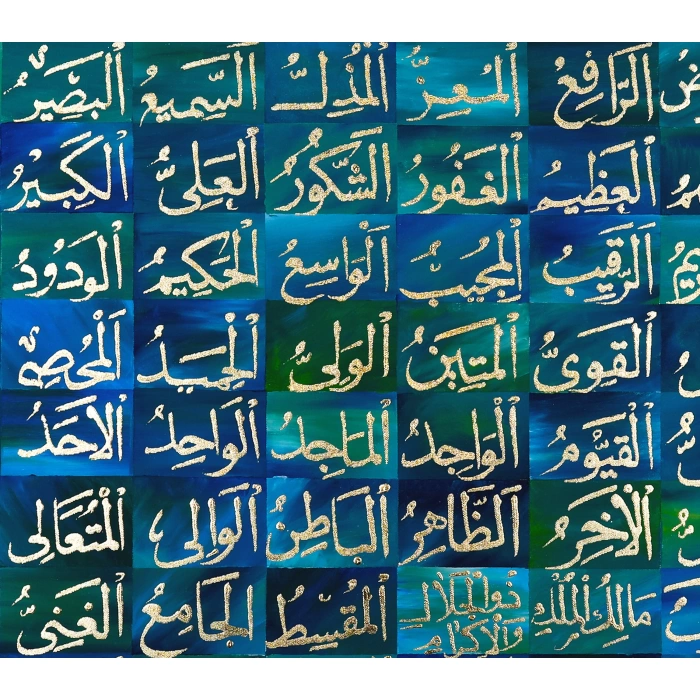 ٱلرَّافِعُ ٱلْمُعِزُّ ٱلْمُذِلُّ ٱلسَّمِيعُ ٱلْبَصِيرُ
ٱلْعَظِيمُ ٱلْغَفُورُ ٱلشَّكُورُ ٱلْعَلِيُّ ٱلْكَبِيْرُ
ٱلرَّقِيبُ ٱلْمُجِيبُ ٱلْوَاسِعُ ٱلْحَكِيمُ ٱلْوَدُودُ
ٱلْقَوِىُّ ٱلْمَتِينُ ٱلْوَلِىُّ ٱلْحَمِيدُ ٱلْمُحْصِى
ٱلْقَيُّومُ ٱلْوَاجِدُ ٱلْمَاجِدُ ٱلْوَاحِدُ ٱلْأَحَدُ
ٱلْآخِرُ ٱلظَّاهِرُ ٱلْبَاطِنُ ٱلْوَالِى ٱلْمُتَعَالِى
مَالِكُ ٱلْمُلْكِ ذُو ٱلْجَلَالِ وَٱلْإِكْرَامِ ٱلْمُقْسِطُ ٱلْجَامِعُ ٱلْغَنِىُّ